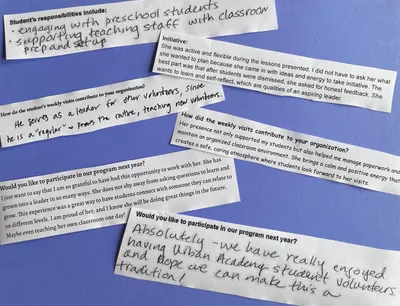 Student's responsibilities include:
• engaging with preschool students
• supporting teaching staff with classroom
prep and set-up
Initiative:
She was active and flexible during the lessons presented. I did not have to ask her what
she wanted to plan because she came in with ideas and energy to take initiative. The
best part was that after students were dismissed, she asked for honest feedback. She
wants to learn and self-reflect, which are qualities of an aspiring leader.
How do the student's weekly visits contribute to your organization?
He serves as a leader for other volunteers, since
he is a "regular" - knows the routine, teaching new volunteers.
How did the weekly visits contribute to your organization?
Her presence not only supported my students but also helped me manage paperwork and
maintain an organized classroom environment. She brings a calm and positive energy that
creates a safe, caring atmosphere where students look forward to her visits.
Would you like to participate in our program next year?
I just want to say that I am so grateful to have had this opportunity to work with her. She has
grown into a leader in so many ways. She does not shy away from asking questions to learn and
grow. This experience was a great way to have students connect with someone they can relate to
on different levels. I am proud of her, and I know she will be doing great things in the future.
Maybe even teaching her own classroom one day!
Would you like to participate in our program next year?
Absolutely - we have really enjoyed
having Urban Academy student volunteers
and hope we can make this a
tradition!